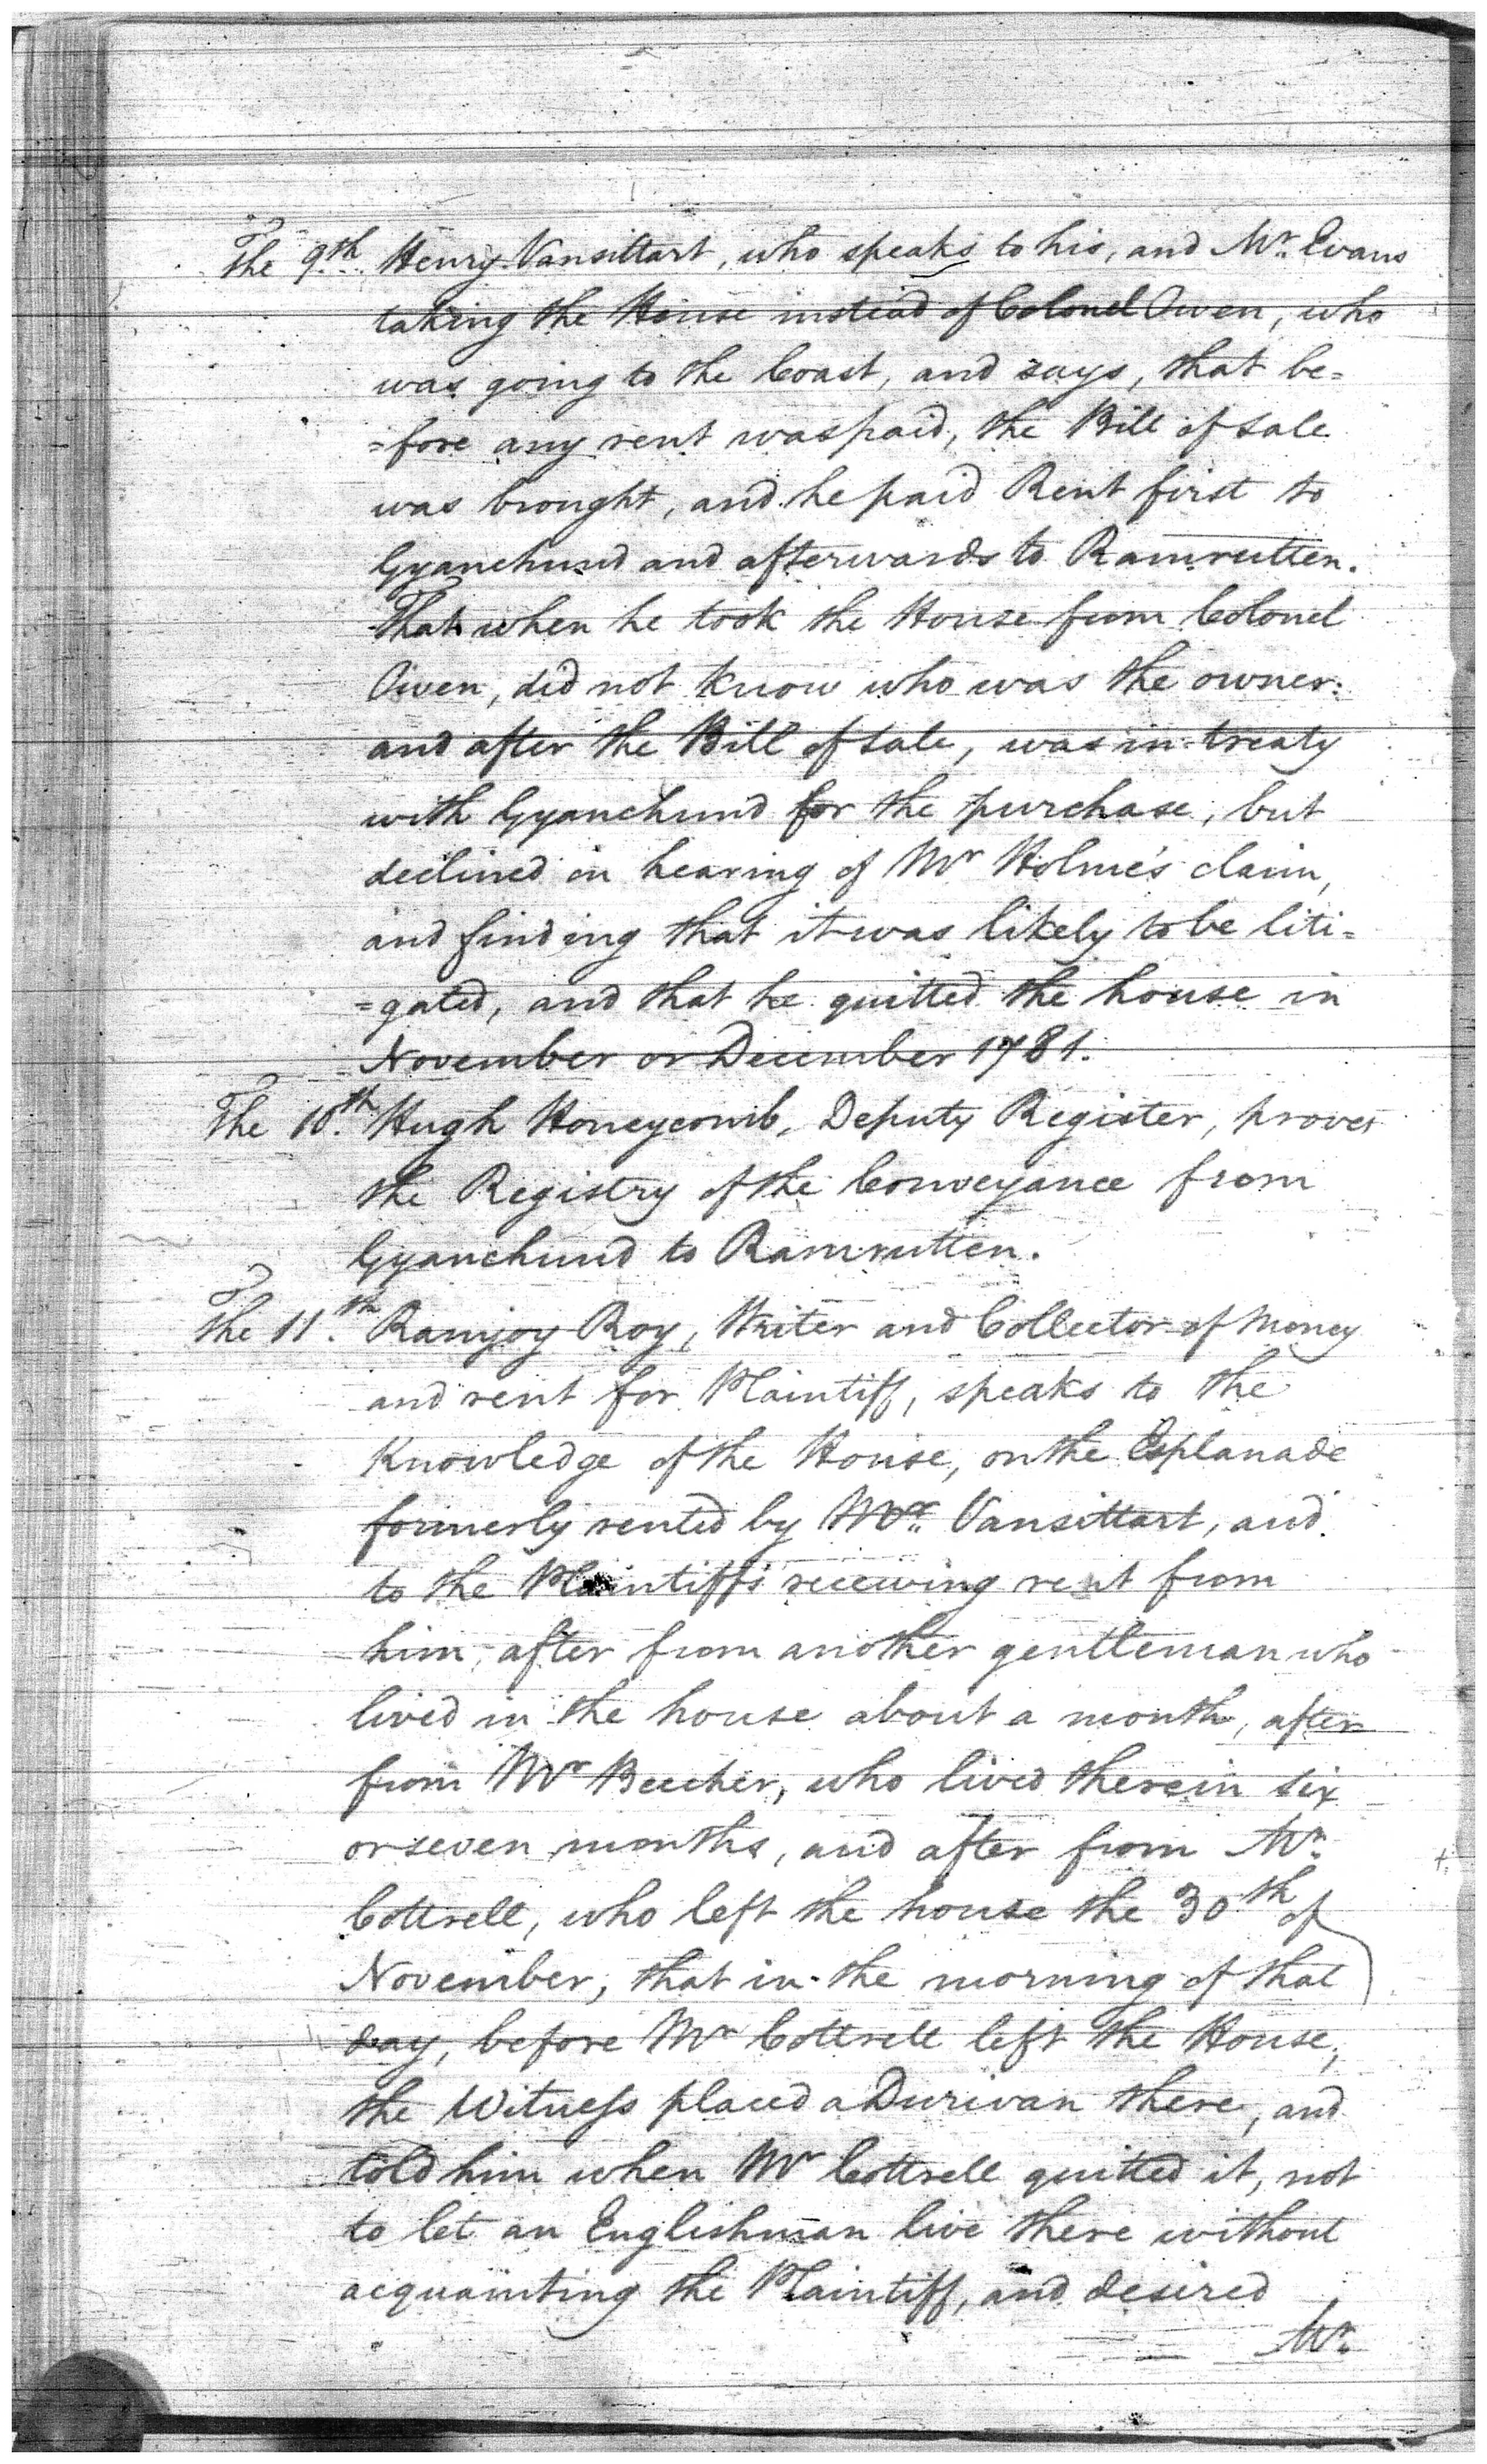 The 9th. Henry Vansittart, who speaks to his, and Mr. Evans
taking the House instead of Colonel Owen, who
was going to the Coast, and says, that be=
=fore any rent was paid, the Bill of Sale
was brought, and he paid Rent first to
Gyanchund and afterwards to Ramrutten.
That when he took the House from Colonel
Owen, did not know who was the owner:
and after the Bill of Sale, was in treaty
with Gyanchund for the purchase, but
declined on hearing of Mr Holme's claim,
and finding that it was likely to be liti=
=gated, and that he quitted the house in
November or December 1781.
The 10.th Hugh Honeycomb, Deputy Register, proves
the Registry of the Conveyance from
Gyanchund to Ramrutten.
The 11.th Ramjoy Roy, Writer and Collector of Money
and rent for Plaintiff, speaks to the
Knowledge of the House, on the Esplanade
formerly rented by Mr. Vansittart, and
to the Plaintiffs receiving rent from
him, after from another gentleman who
lived in the house about a month, after
from Mr Beecher, who lived therein six
or seven months, and after from Mr.
Cottrell, who left the house the 30th of
November, that in the morning of that
day, before Mr Cottrell left the House,
the Witness placed a Durwan there, and
told him when Mr Cottrell quitted it, not
to let an Englishman live there without
acquainting the Plaintiff, and desired
Mr.